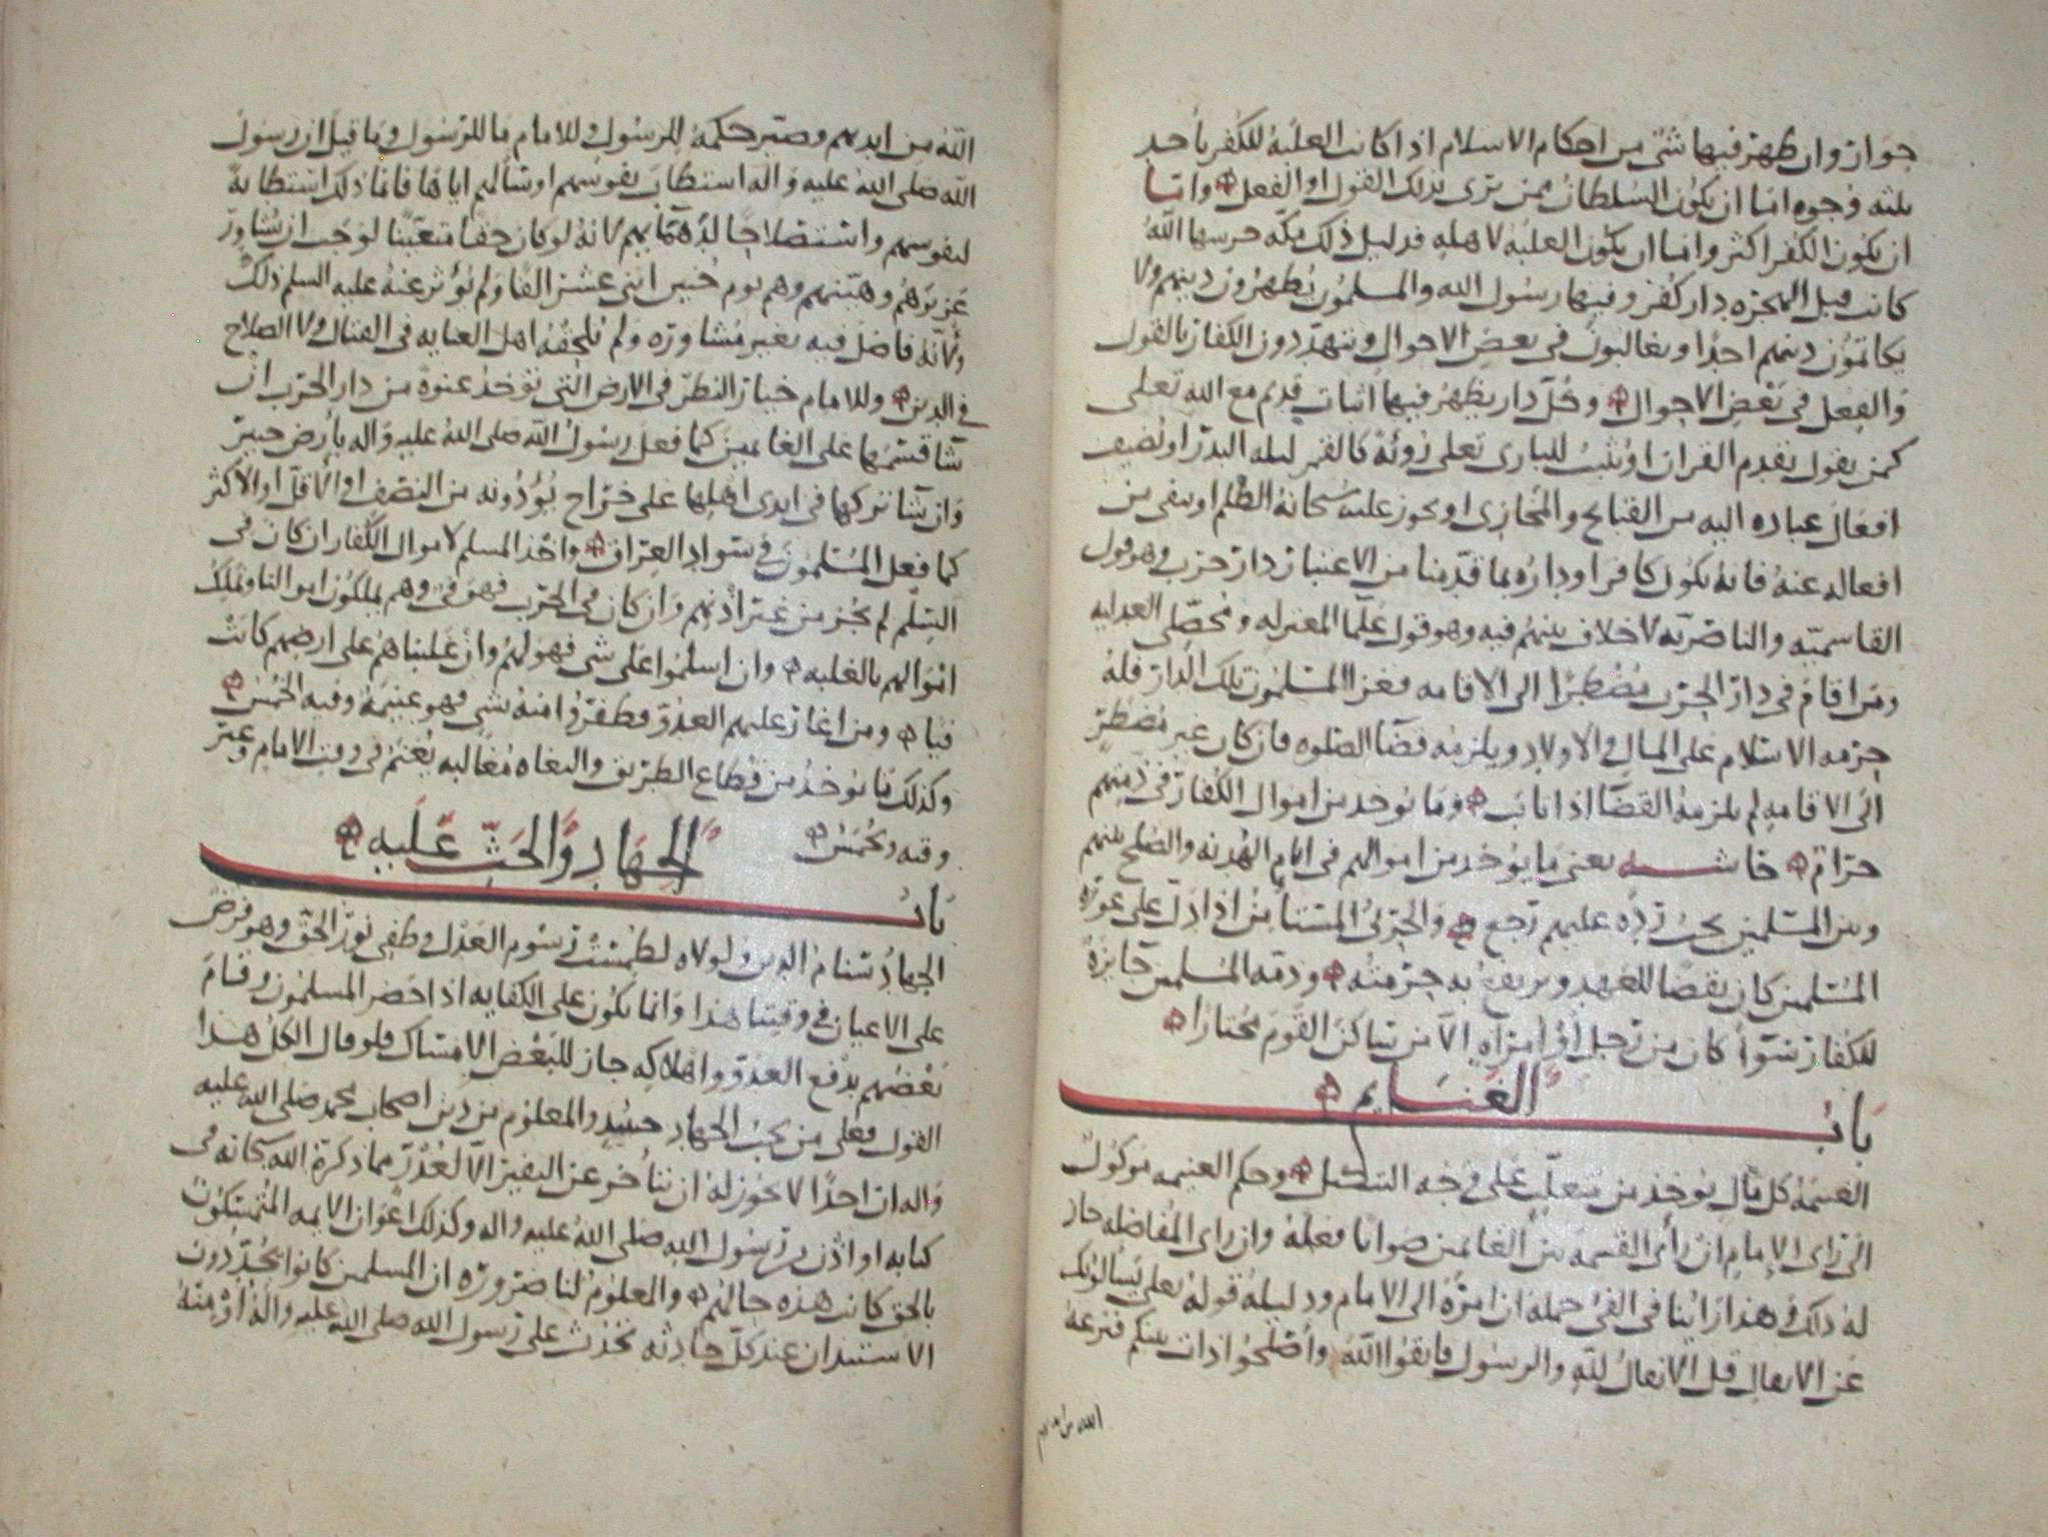 جوار وان ظهر فيها شئ من احكام الاسلام اذا كانت الغلبة للكفر باحد
ثلثه وجوه اما ان يكون السلطان ممن يرى بذلك القول او الفعل واما
ان يكون الكفر اكثر واما ان يكون الغلبة لاهله فدليل ذلك مكّه حرسها اللّه
كانت قبل الهجره دار كفر وفيها رسول الله والمسلمون يظهرون دينهم ولا
يكاتمون دينهم احدًا ويغالبون في بعض الاحوال ويتهددون الكفار بالقول
والفعل في بعض الاحوال وكل دار يظهر فيها اثبات قديم مع الله تعلى
كمن يقول بقدم القران او يثبت للبارى تعلى رؤية كالقمر ليله البدر او يضيف
افعال عباده اليه من القبايح والمخازى او يجوز عليه سبحانه الظلم او ينفى من
افعاله عنه فانه يكون كافرا وداره بما قدمنا من الاعتبار دار حرب وهو قول
القاسميه والناصريه لا خلاف بينهم فيه وهو قول علما المعتزله ومحصلى العدليه
ومن اقام في دار الحرب مضطرًا الى الاقامه فغزا المسلمون تلك الدار فله
حرمه الاسلام على المال والاولاد ويلزمه قضا الصلوه فان كان غير مضطر
الى الاقامه لم يلزمه القضا اذا تاب وما يوخذ من اموال الكفار في ذمتهم
حرام حاشيه يعنى ما يوخذ من اموالهم في ايام الهدنه والصلح بينهم
وبين المسلمين يجب رده عليهم رجع والحربى المستامن اذا دل على عورة
المسلمين كان نقضا للعهد ويرتفع به حرمته وذمه المسلمين جايزة
للكفار سوأ كان من رجل او امراه الا من ساكن القوم مختارا
باب الغنايم
الغنيمة كل مال يوخذ من متغلب على وجه وحكم الغنيمه موكول
الى راى الامام ان رأى القسمه بين الغانمين صوابا فعله وان راى المفاضله جاز
له ذلك وهذا راينا في الفئ جمله ان امره الى الامام ودليله قوله تعلى يسالونك
عن الانفال قل الانفال لله والرسول فاتقوا الله وأصلحوا ذات بينكم فنزعه
الله من ايديهم
الله من ايديهم وصير حكمه للرسول وللامام ما للرسول وما قيل ان رسول
الله صلى الله عليه واله استطاب نفوسهم او سالهم اياها فانما ذلك استطابة
لنفوسهم واستصلاحًا لانه لو كان حقا متعينا لوجب ان يشاور
عزبهم وهينهم وهم يوم حنين اثنى عشر الفًا ولم يؤثر عنه عليه السلم ذلك
ولانه فاضل فيه بغير مشاوره ولم تلحقه اهل العنايه في القتال ولا الصلاح
في الدين وللامام خيار النظر في الارض التى توخذ عنوة من دار الحرب ان
شا قسمها على الغانمين كما فعل رسول الله صلى الله عليه واله بأرض خيبر
وان شا تركها في ايدى اهلها على خراج يؤدونه من النصف او الاقل او الاكثر
كما فعل المسلمون في سواد العراق واخذ المسلم لاموال الكفار ان كان في
السلم لم يجز من غير اذنهم وان كان في الحرب فهو في وهم يملكون اموالنا ونملك
اموالهم بالغلبه وان اسلموا على شى فهو لهم وان غلبناهم على ارضهم كانت
فيا ومن اغار عليهم العدو فظفروا منه بشى فهو غنيمة وفيه الخمس
وكذلك ما يوخذ من قطاع الطريق والبغاه مغالبه يغنم في وقت الامام وغير
وقته ويخمس
باب الجهاد والحث عليه
الجهاد سنام الدين ولولاه لطمست رسوم العدل وطفى نور الحق وهو فرض
على الاعيان في وقتنا هذا وانما يكون على الكفايه اذا حضر المسلمون وقام
بعضهم بدفع العدو واهلاكه جاز للبعض الامساك فلو قال الكل هذا
القول فعلى من يجب الجهاد حينيد والمعلوم من دين اصحاب محمد صلى الله عليه
واله ان احدًا لا يجوز له ان يتأخر عن النفير الا لعذر مما ذكره الله سبحانه في
كتابه او اذن من رسول الله صلى الله عليه واله وكذلك اعوان الايمه المتمسكون
بالحق كانت هذه حالهم والمعلوم لنا ضرورة ان المسلمين كانوا يجددون
الاستيدان عند كل حادثه تحدث على رسول الله صلى الله عليه واله او منه